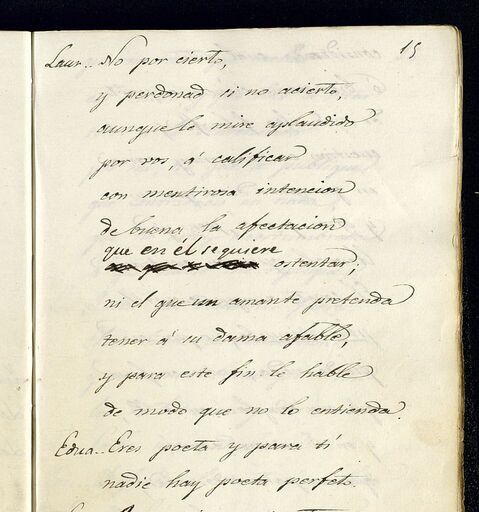 15
Laur.. No por cierto,
y perdonad si no acierto,
aunque le mire aplaudido
por vos, á calificar
con mentirosa intencion
de buena la afectacion
que en él se quiere
ostentar;
ni el que un amante pretenda
tener á su dama afable,
y para este fin le hable
de modo que no lo entienda.
Edua.. Eres poeta y para ti
nadie hay poeta perfet.